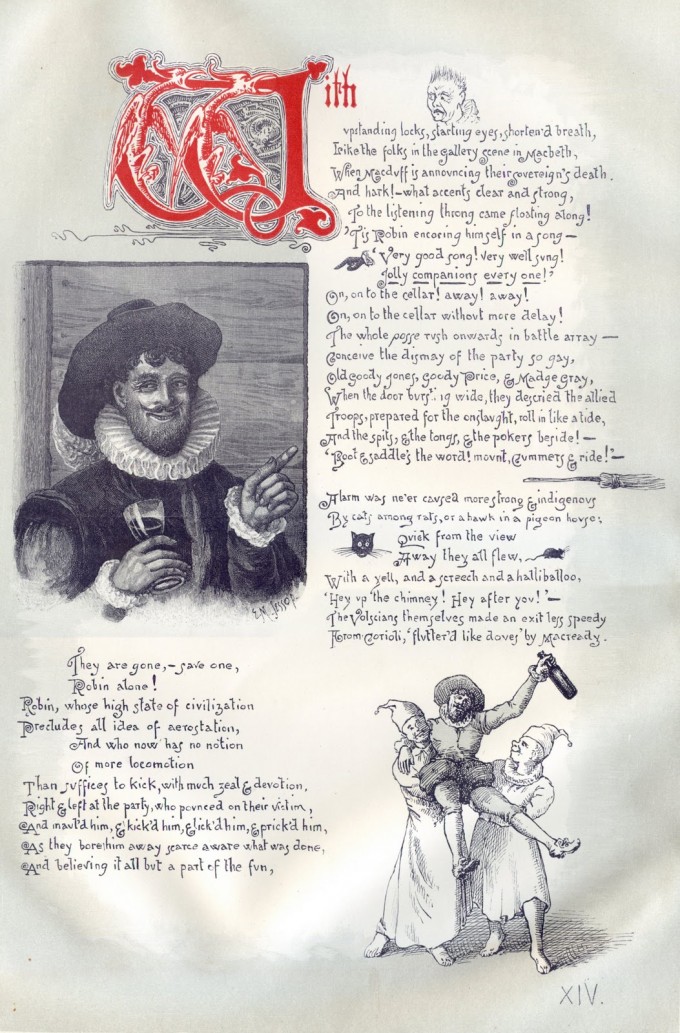 With
upstanding locks, starting eyes, shorten'd breath,
Like the folks in the Gallery Scene in Macbeth,
When Macduff is announcing their Sovereign's death.
And hark!—what accents clear and strong,
To the listening throng came floating along!
'Tis Robin encoring himself in a song—
'Very good song! very well sung!
Jolly companions every one!'
On, on to the cellar! away! away!
On, on to the cellar without more delay!
The whole posse rush onwards in battle array—
Conceive the dismay of the party so gay,
Old Goody Jones, Goody Price, & Madge Gray,
When the door bursting wide, they descried the allied
Troops, prepared for the onslaught, roll in like a tide,
And the spits, & the tongs, & the pokers beside!—
'Boot & saddle's the word! mount, Cummers & ride!'—
Alarm was ne'er caused more strong & indigenous
By cats among rats, or a hawk in a pigeon house:
Quick from the view
Away they all flew,
With a yell, and a screech and a halliballoo,
'Hey up the chimney! Hey after you!'—
The Volscians themselves made an exit less speedy
From Corioli, 'flutter'd like doves' by Macready.
E.M. Jessop
They are gone,—save one,
Robin alone!
Robin, whose high state of civilization
Precludes all idea of aerostation,
And who now has no notion
Of more locomotion
Than suffices to kick, with much zeal & devotion,
Right & left at the party, who pounced on their victim,
And maul'd him, & kick'd him, & lick'd him, & prick'd him,
As they bore him away scarce aware what was done,
And believing it all but a part of the fun,
XIV.